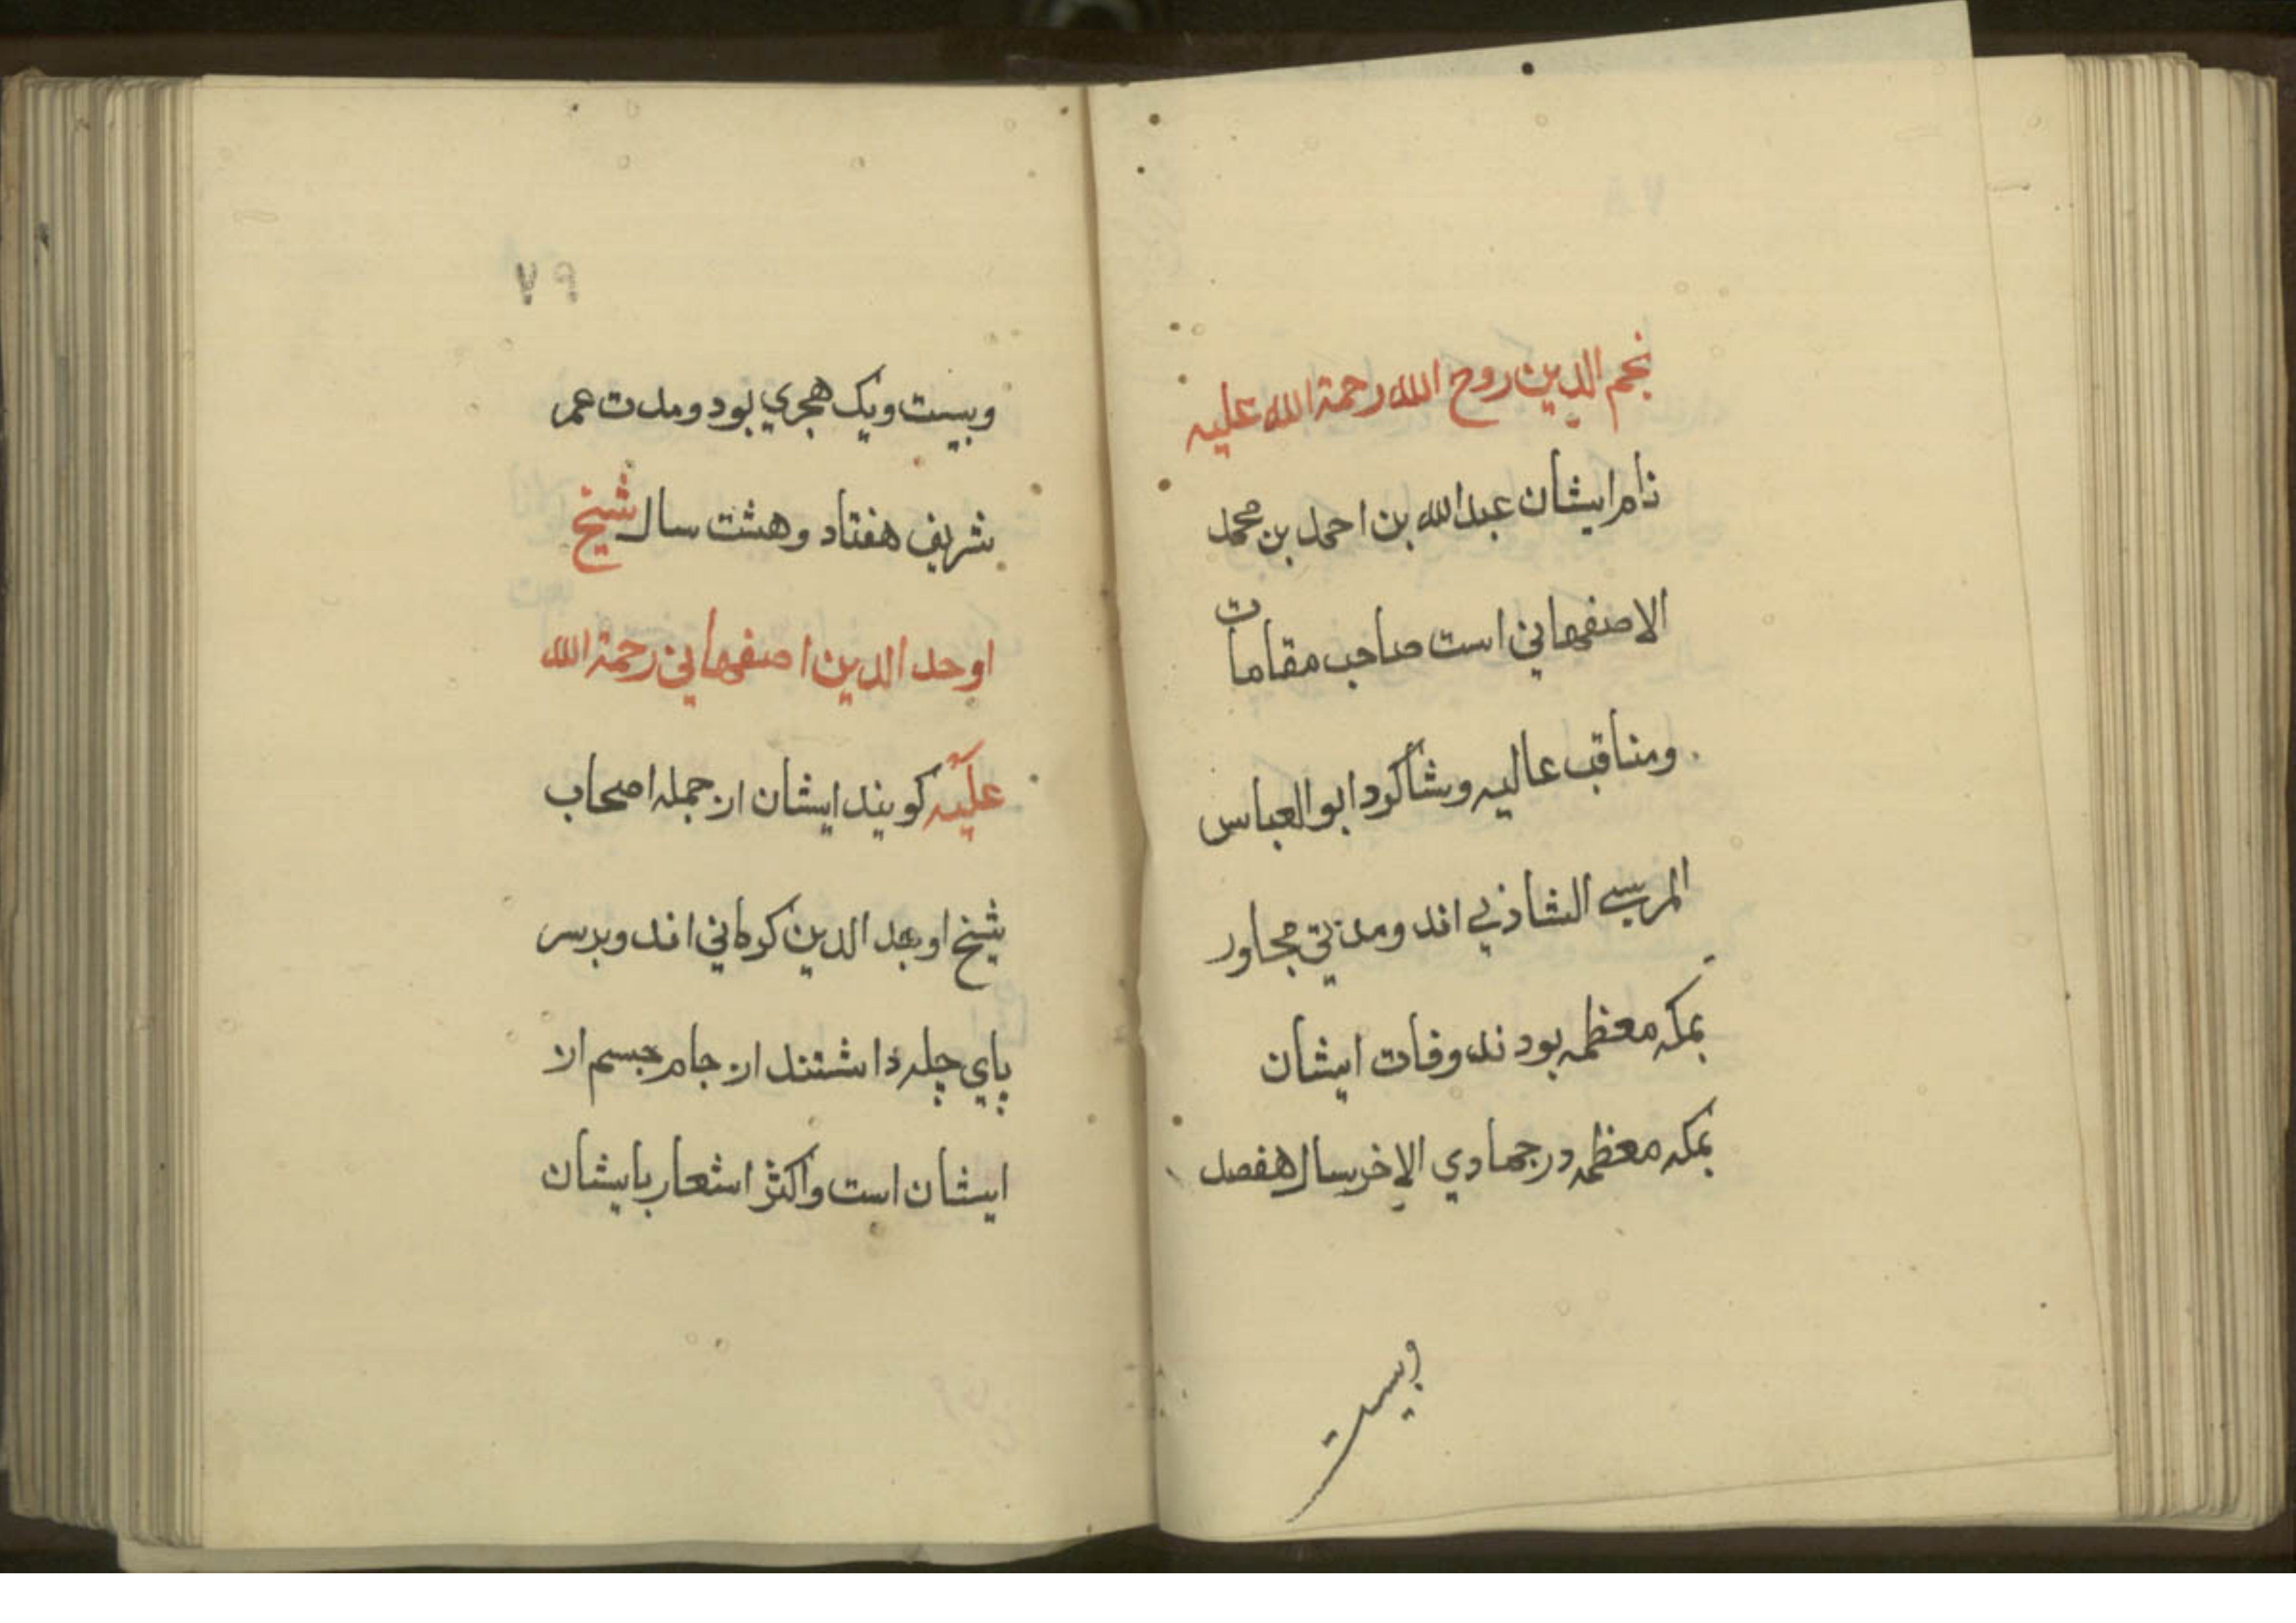 نجم الدین روح الله رحمة الله علیه
نام ایشان عبدالله بن احمد بن محمد
الاصفهانی است صاحب مقامات
ومناقب عالیه وشاکرد ابوالعباس
المرسی الشاذلی اند ومدتی مجاور
بمکه معظمه بودند وفات ایشان
بمکه معظمه در جمادی الاخر سال هفصد
وبیست
۷۹
وبیست ویک هجری بود ومدت عمر
شریف هفتاد وهشت سال شیخ
اوحد الدین اصفهانی رحمة الله
علیه کویند ایشان از جمله اصحاب
شیخ اوحد الدین کرمانی اند وبر سر
پای چله داشتند از جام جسم از
ایشان است واکثر اشعار بایشان